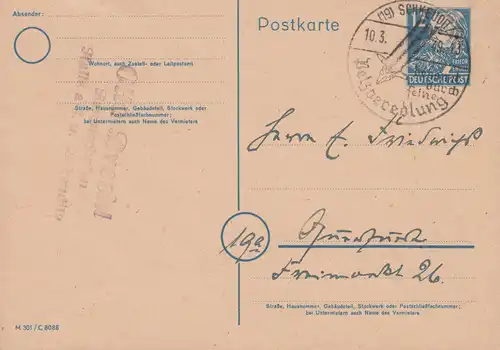 Absender:
Wohnort, auch Zustell- oder Leitpostamt
Straße, Hausnummer, Gebäudeteil, Stockwerk oder
Postschließfachnummer;
bei Untermietern auch Name des Vermieters
M 301 / C 8088
Postkarte
12
DEUTSCHE POST
(19) SCHKEUDITZ
10.3.
durch
seine
Pelzveredlung
Herrn E. Friedrich
19a
Querfurt
Freimarkt 26.
Straße, Hausnummer, Gebäudeteil, Stockwerk oder Postschließfachnummer;
bei Untermietern auch Name des Vermieters